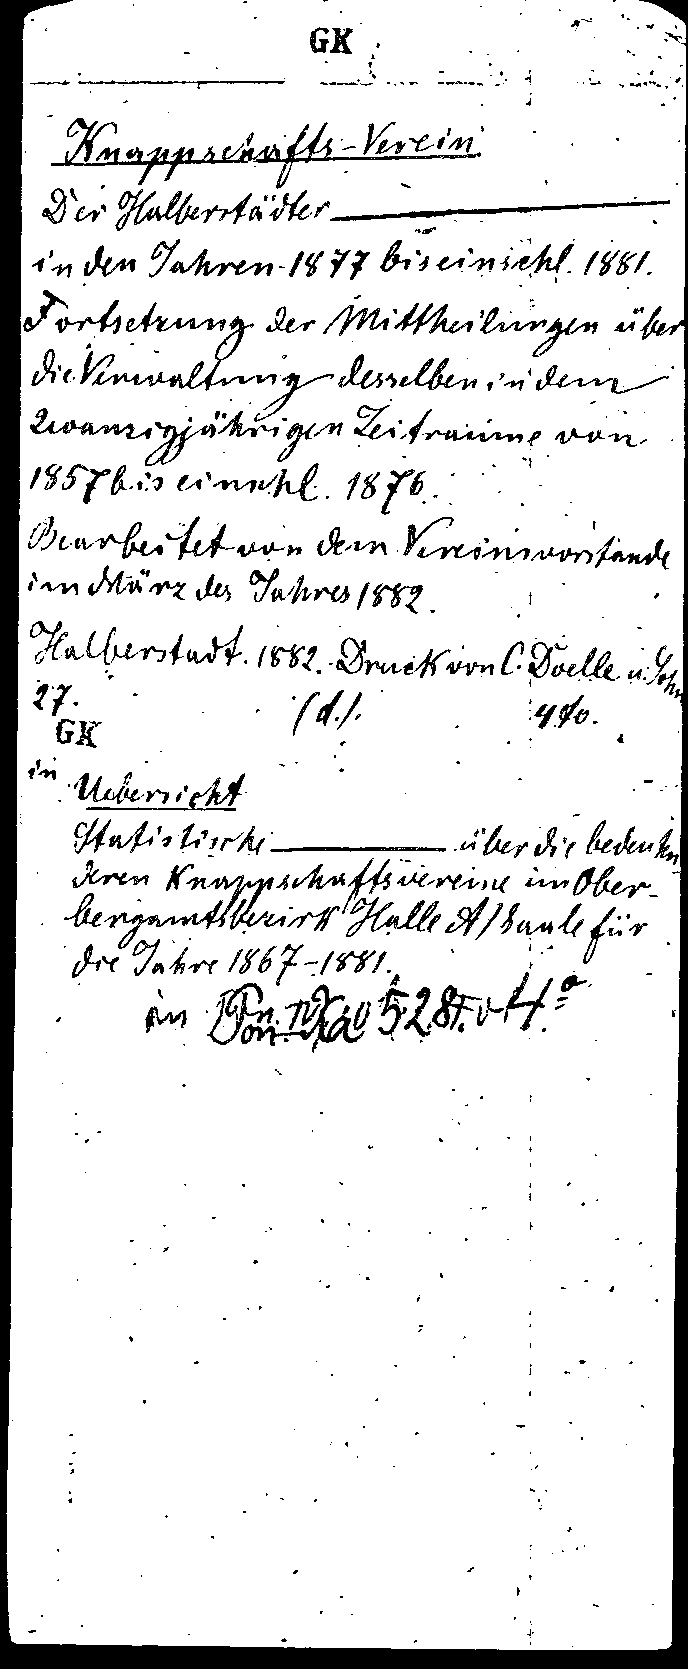 GK
Knappschafts-Verein
Der Halberstädter ———
in den Jahren 1877 bis einschl. 1881.
Fortsetzung der Mittheilungen über
die Verwaltung desselben in dem
zwanzigjährigen Zeitraume von
1857 bis einschl. 1876.
Bearbeitet von dem Vereinsvorstande
im März des Jahres 1882.
Halberstadt. 1882. Druck von C. Doelle u. Sohn
27. (d.). 4to.
GK
in
Uebersicht
Statistische ——— über die bedeuten-
deren Knappschaftsvereine im Ober-
bergamtsbezirk Halle A/Saale für
die Jahre 1867-1881.
in 528